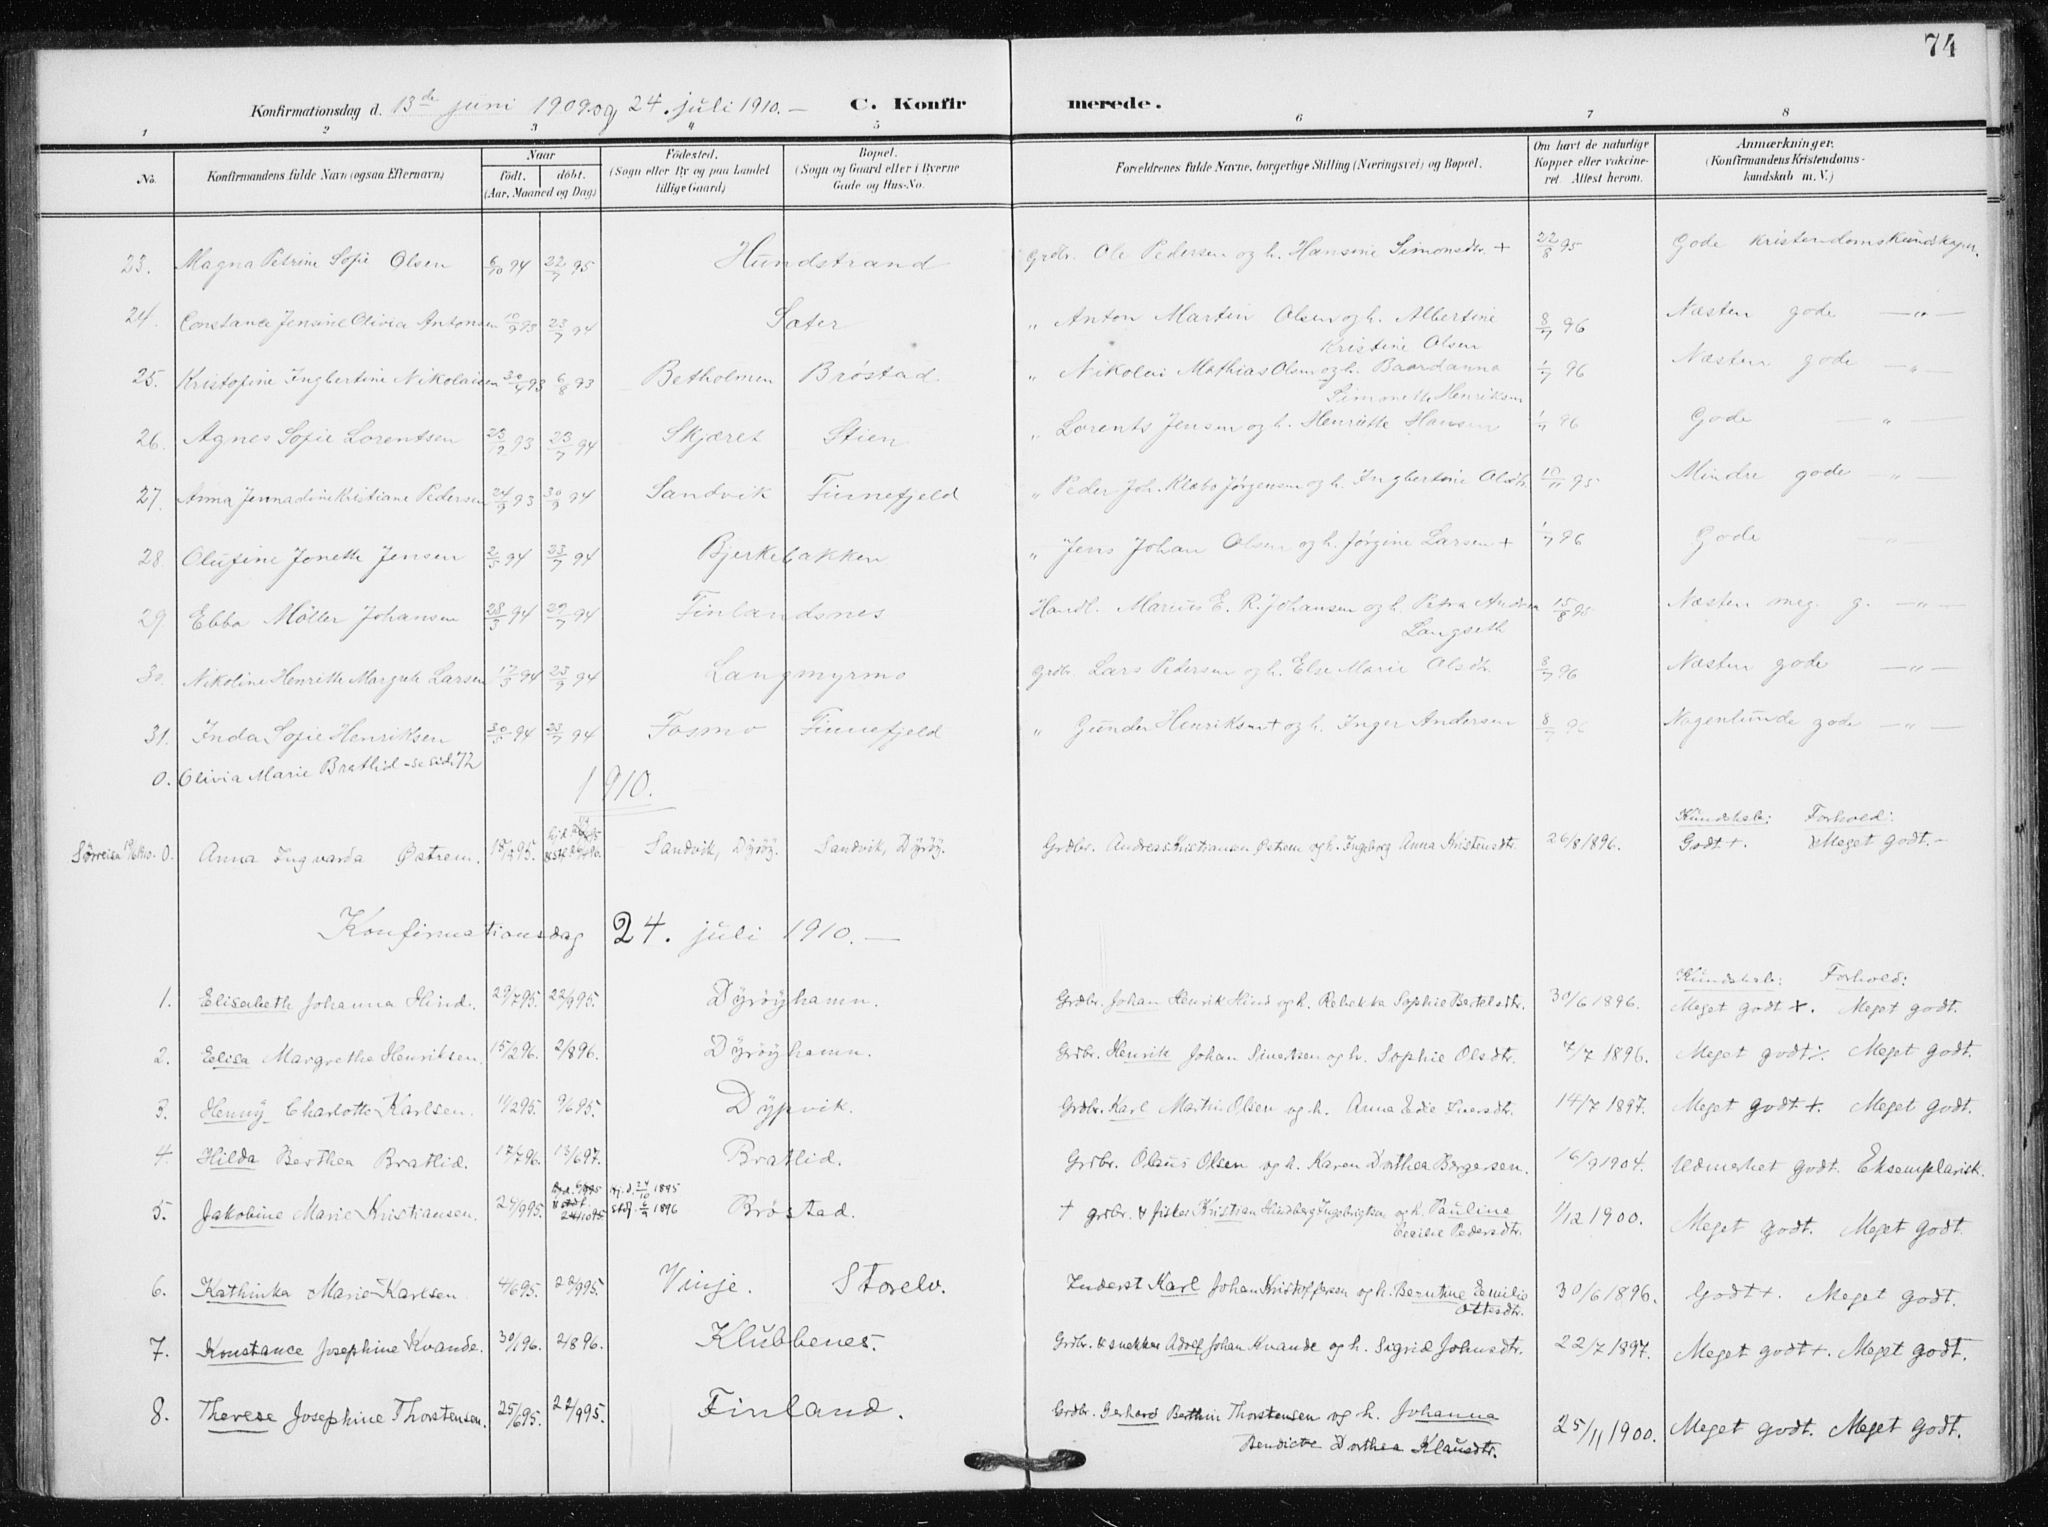 74
Konfirmationsdag d. 13de juni 1909 og 24. juli 1910. — C. Konfirmerede.
1 2 3 4 5 6 7 8
No. Konfirmandens fulde Navn (ogsaa Efternavn) Naar født. døbt. (Aar, Maaned og Dag) Fødested. (Sogn eller By og paa Landet tillige Gaard) Bopæl. (Sogn og Gaard eller i Byerne Gade og Hus-No. Forældrenes fulde Navne, borgerlige Stilling (Næringsvei) og Bopæl. Om havt de naturlige Kopper eller vakcineret. Attest herom. Anmærkninger. (Konfirmandens Kristendomskundskab m. V.)
23. Magna Petrine Sofie Olsen 6/10 94 22/7 95 Hundstrand Grdbr. Ole Pedersen og h. Hansine Simonsdtr. + 22/8 95 Gode Kristendomskundskaper.
24. Constance Jensine Olivia Antonsen 93 23/7 94 Sæter " Anton Martin Olsen og h. Albertine Kristine Olsen 8/7 96 Næsten gode — " —
25. Kristofine Ingbertine Nikolaisen 30/4 93 6/8 93 Betholmen Brøstad " Nikolai Mathias Olsen og h. Baardanna Simonette Henriksen 1/7 96 Næsten gode — " —
26. Agnes Sofie Lorentsen 25/12 93 23/7 94 Skjæret Stien " Lorents Jensen og h. Henriette Hansen 1/7 96 Gode — " —
27. Anna Jennadine Kristiane Pedersen 24/9 93 30/9 94 Sandvik Finnefjeld " Peder Joh. Klæbo Jørgensen og h. Ingbertine Olsdtr. 10/11 95 Mindre gode — " —
28. Olufine Jonette Jensen 2/5 94 23/7 94 Bjerkebakken " Jens Johan Olsen og h. Jørgine Larsen + 1/7 96 Gode — " —
29. Ebba Møller Johansen 28/3 94 29/7 94 Finlandsnes Handl. Marius E. R. Johansen og h. Petra Andrea Langseth 15/8 95 Næsten meg. g. — " —
30. Nikoline Henriette Margrete Larsen 17/5 94 23/9 94 Langmyrmo Grdbr. Lars Pedersen og h. Else Marie Olsdtr. 8/7 96 Næsten gode — " —
31. Inda Sofie Henriksen 30/5 94 23/7 94 Fosmo Finnefjeld " Gunder Henriksen + og h. Inger Andersen 8/7 96 Nogenlunde gode — " —
0. Olivia Marie Bratlid - se side 72
1910.
Kundskab: Forhold:
Sørreisa 0. Anna Ingvarda Østrem. 95. Sandvik, Dyrøy. Sandvik, Dyrøy. Grdbr. Andreas Kristiansen Østrem og h. Ingeborg Anna Kristensdtr. 26/8 1896. Godt +. Meget godt. -
Konfirmationsdag 24. juli 1910. —
Kundskab: Forhold:
1. Elisabeth Johanna Hind. 29/7 95. 22/9 95. Dyrøyhamn. Grdbr. Johan Henrik Hind og h. Rebekka Sophie Bertelsdtr. 30/6 1896. Meget godt +. Meget godt.
2. Elisa Margrethe Henriksen. 15/2 96. 2/8 96. Dyrøyhamn. Grdbr. Henrik Johan Sivertsen og h. Sophie Olsdtr. 7/7 1896. Meget godt ÷. Meget godt.
3. Henny Charlotte Karlsen. 11/2 95. 9/6 95. Dypvik. Grdbr. Karl Martin Olsen og h. Anna Edie Iversdtr. 14/7 1897. Meget godt +. Meget godt.
4. Hilda Berthea Bratlid. 17/7 96. 13/6 97. Bratlid. Grdbr. Olaus Olsen og h. Karen Dorthea Borgersen. 16/9 1904. Udmerket godt. Eksemplarisk.
5. Jakobine Marie Kristiansen. 24/9 95. hj.d. 24/10 1895 stdf. 1896 Brøstad. † grdbr. & fisker Kristian Hindberg Ingebrigtsen og h. Pauline Cecilie Pedersdtr. 1/12 1900. Meget godt. Meget godt.
6. Kathinka Marie Karlsen. 4/6 95. 22/9 95. Vinje. Storelv. Inderst Karl Johan Kristoffersen og h. Berntine Emilie Ottesdtr. 30/6 1896. Godt +. Meget godt.
7. Konstance Josephine Kvande. 30/1 96. 2/8 96. Klubbenes. Grdbr. & snekker Adolf Johan Kvande og h. Sigrid Johnsdtr. 22/7 1897. Meget godt +. Meget godt.
8. Therese Josephine Thorstensen. 25/6 95. 22/9 95. Finland. Grdbr. Gerhard Berthin Thorstensen og h. Johanna Benedicte Dorthea Klausdtr. 25/11 1900. Meget godt. Meget godt.